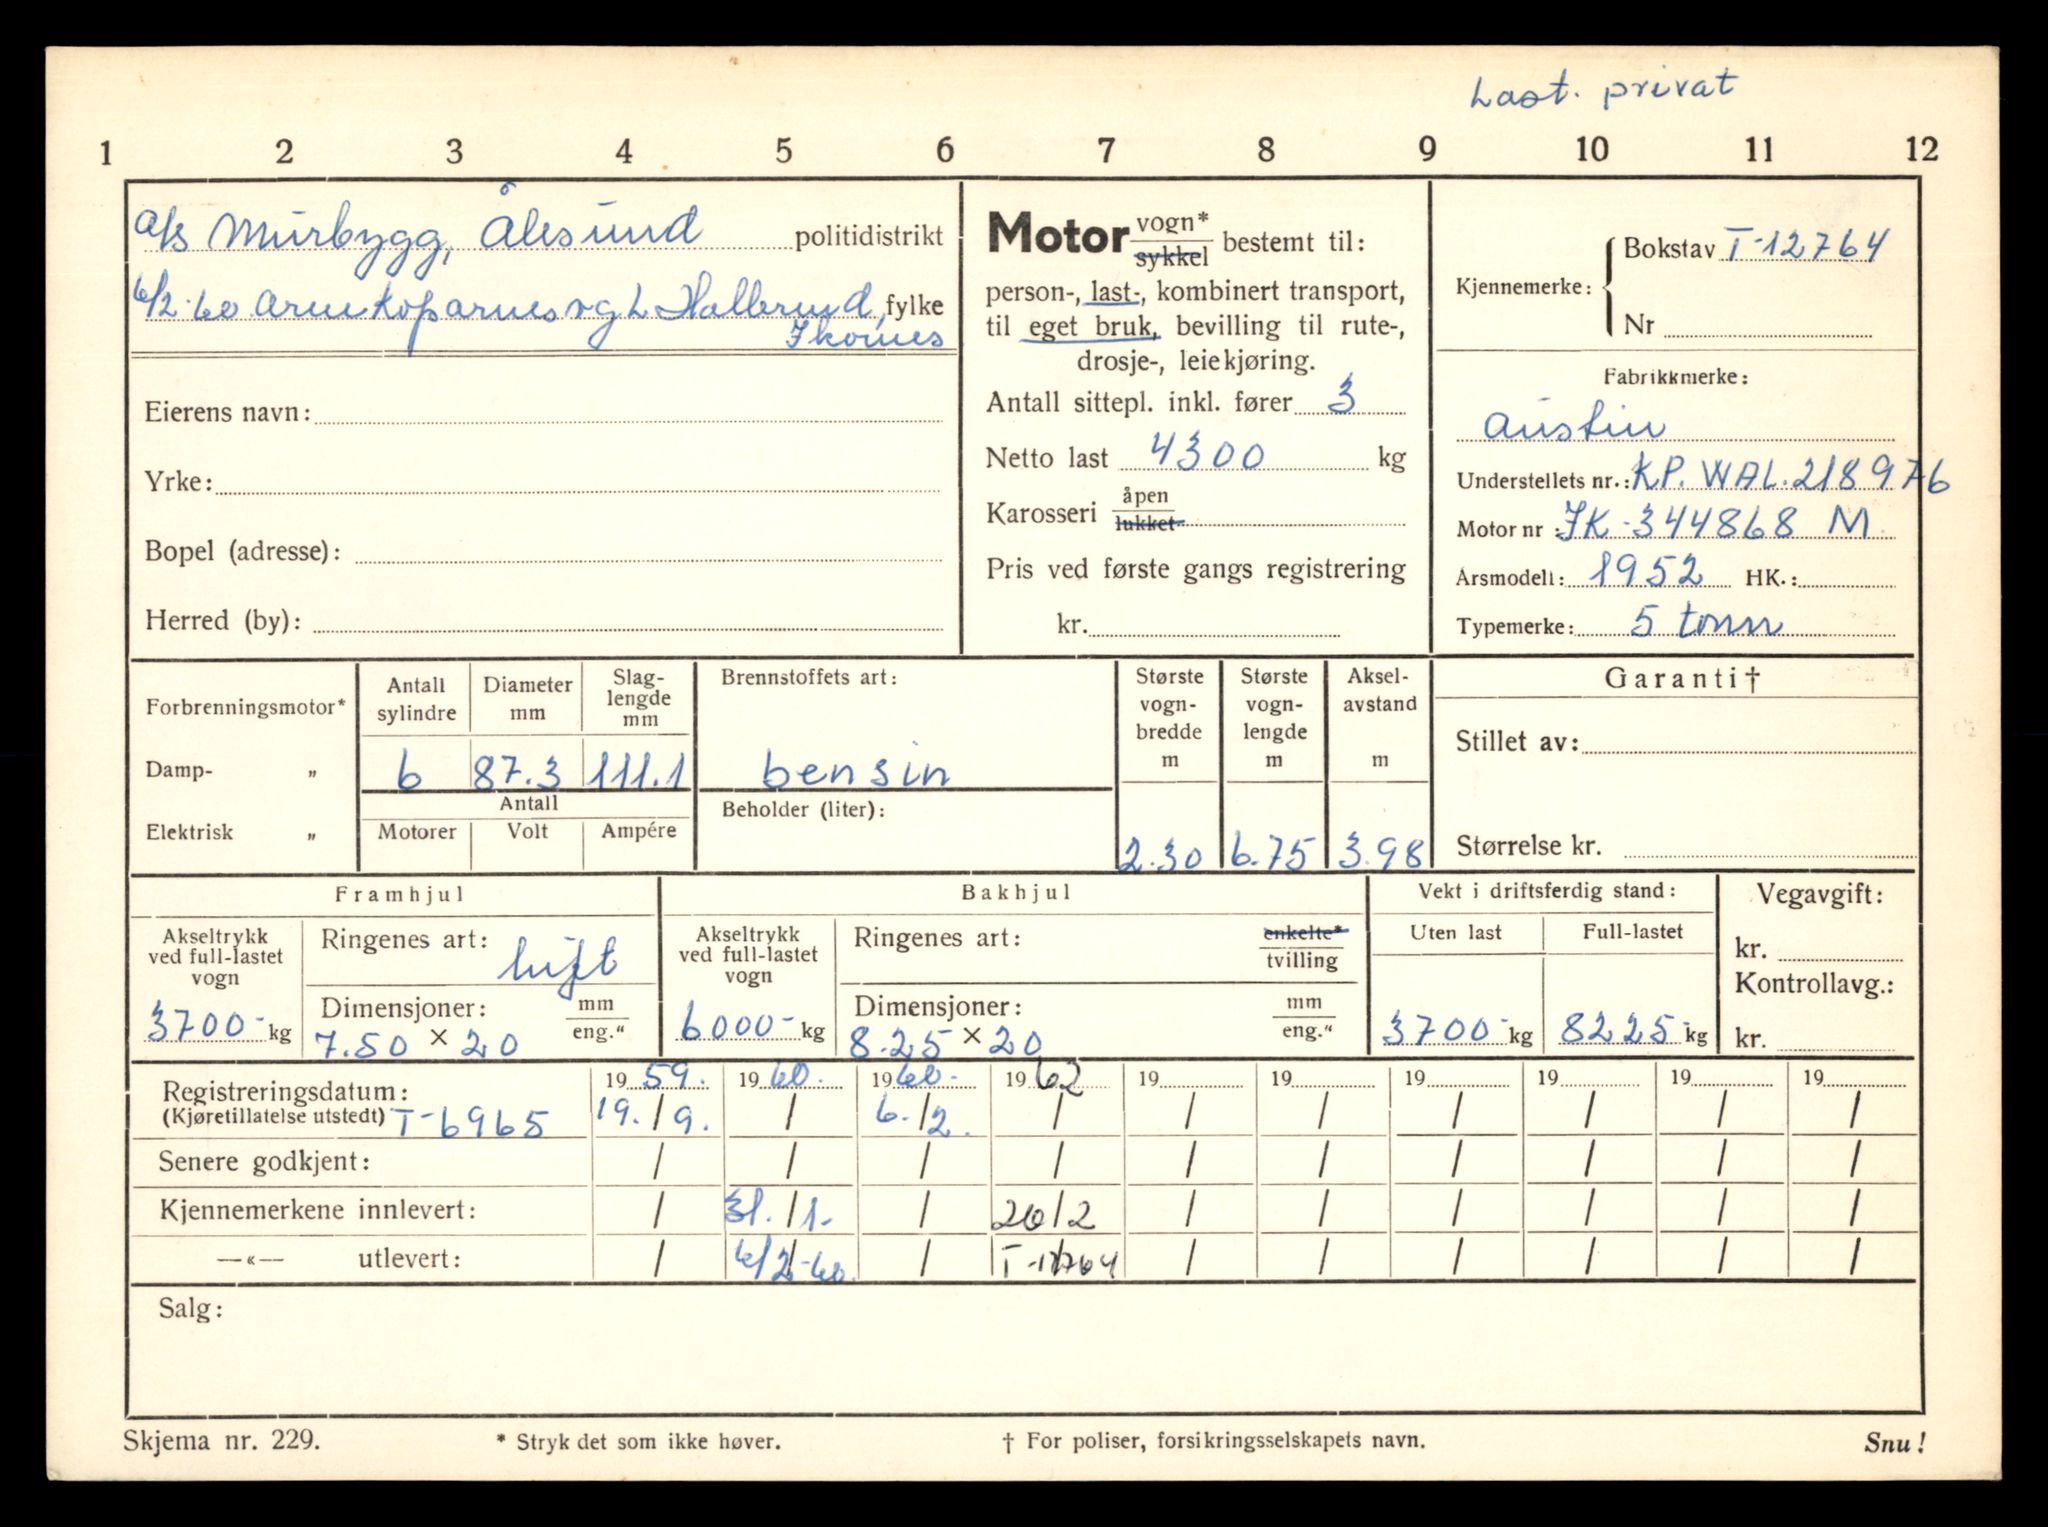 Last. privat
1 2 3 4 5 6 7 8 9 10 11 12
A/s Murbygg, Ålesund politidistrikt
6/2-60 Arne Koparnes og L Hallerud, fylke
Ikornes
Eierens navn:
Yrke:
Bopel (adresse):
Herred (by):
Motor vogn* / sykkel bestemt til:
person-, last-, kombinert transport,
til eget bruk, bevilling til rute-,
drosje-, leiekjøring.
Antall sittepl. inkl. fører 3
Netto last 4300 kg
Karosseri åpen / lukket
Pris ved første gangs registrering
kr.
Kjennemerke: Bokstav T-12764
Nr
Fabrikkmerke:
Austin
Understellets nr.: KP. WAL. 218976
Motor nr: JK-344868 M
Årsmodell: 1952 HK.:
Typemerke: 5 tonn
Forbrenningsmotor*
Damp- „
Elektrisk „
Antall sylindre Diameter mm Slaglengde mm
6 87.3 111.1
Antall
Motorer Volt Ampére
Brennstoffets art:
bensin
Beholder (liter):
Største vognbredde m 2.30
Største vognlengde m 6.75
Akselavstand m 3.98
Garanti †
Stillet av:
Størrelse kr.
Framhjul
Akseltrykk ved full-lastet vogn
3700- kg
Ringenes art: luft
Dimensjoner: mm / eng."
7.50 × 20
Bakhjul
Akseltrykk ved full-lastet vogn
6000- kg
Ringenes art: enkelte* / tvilling
Dimensjoner: mm / eng."
8.25 × 20
Vekt i driftsferdig stand:
Uten last Full-lastet
3700- kg 8225- kg
Vegavgift:
kr.
Kontrollavg.:
kr.
Registreringsdatum: 1959. 1960. 1960. 1962 19 19 19 19 19 19
(Kjøretillatelse utstedt) T-6965 19./9. / 6./2. / / / / / / /
Senere godkjent: / / / / / / / / / /
Kjennemerkene innlevert: / 31./1- / 26/2 / / / / / /
—«— utlevert: / 6/2-60. / T-12764 / / / / / /
Salg:
Skjema nr. 229. * Stryk det som ikke høver. † For poliser, forsikringsselskapets navn. Snu!